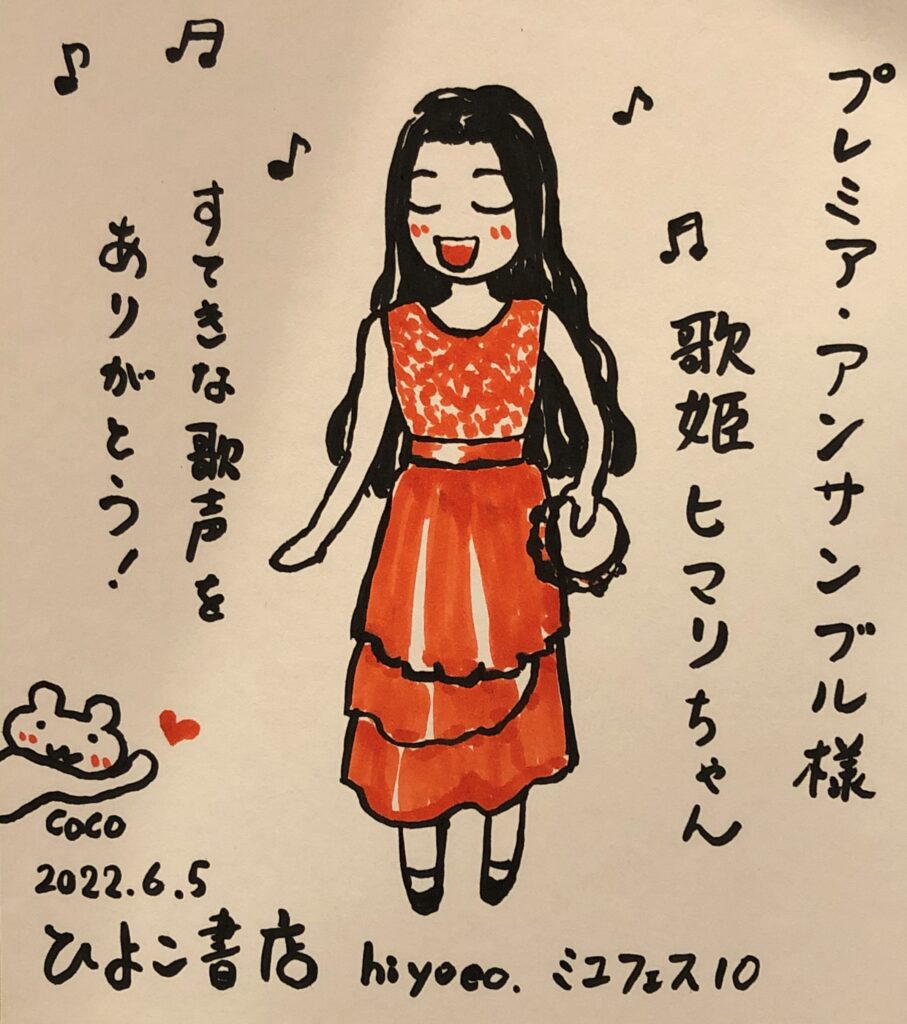 プレミア・アンサンブル様
歌姫ヒマリちゃん
すてきな歌声を
ありがとう!
coco
2022.6.5
ひよこ書店 hiyoco. ミュフェス10